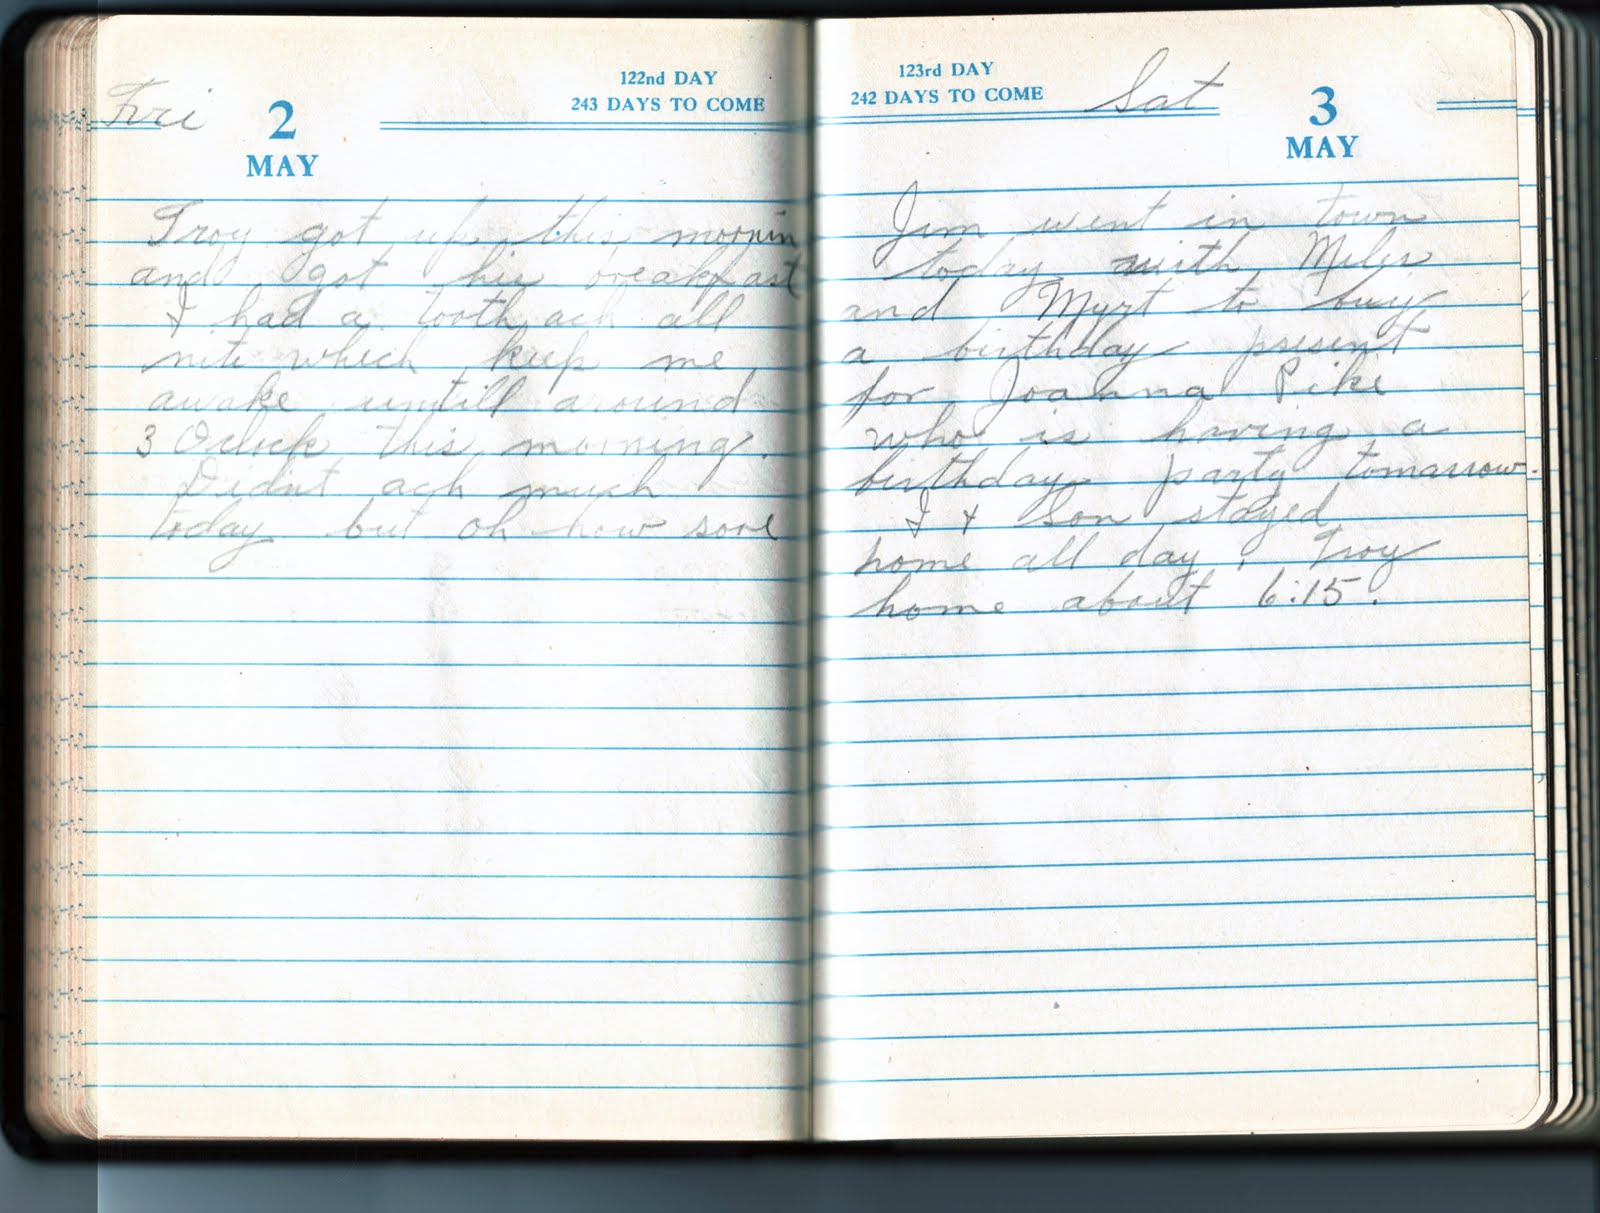 Fri
2
MAY
122nd DAY
243 DAYS TO COME
Troy got up this mornin
and got his breakfast
I had a tooth ach all
nite which keep me
awake untill around
3 Oclock this morning.
Didnt ach much
today but oh how sore
123rd DAY
242 DAYS TO COME
Sat
3
MAY
Jim went in town
today with Miles
and Myrt to buy
a birthday present
for Joanna Pike
who is having a
birthday party tomarrow.
I & Son stayed
home all day. Troy
home about 6:15.